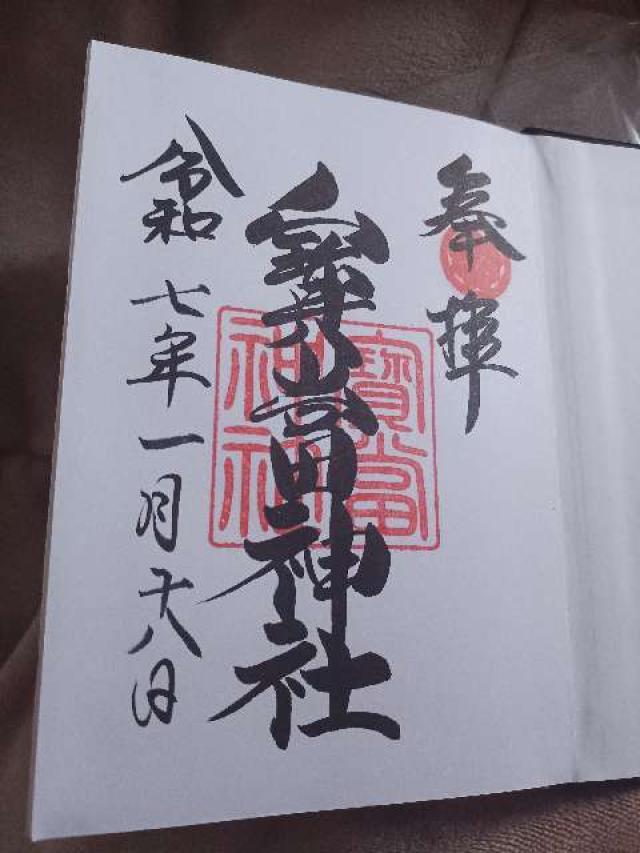 奉拝
寳當神社
寶當
神社
令和七年一月十八日